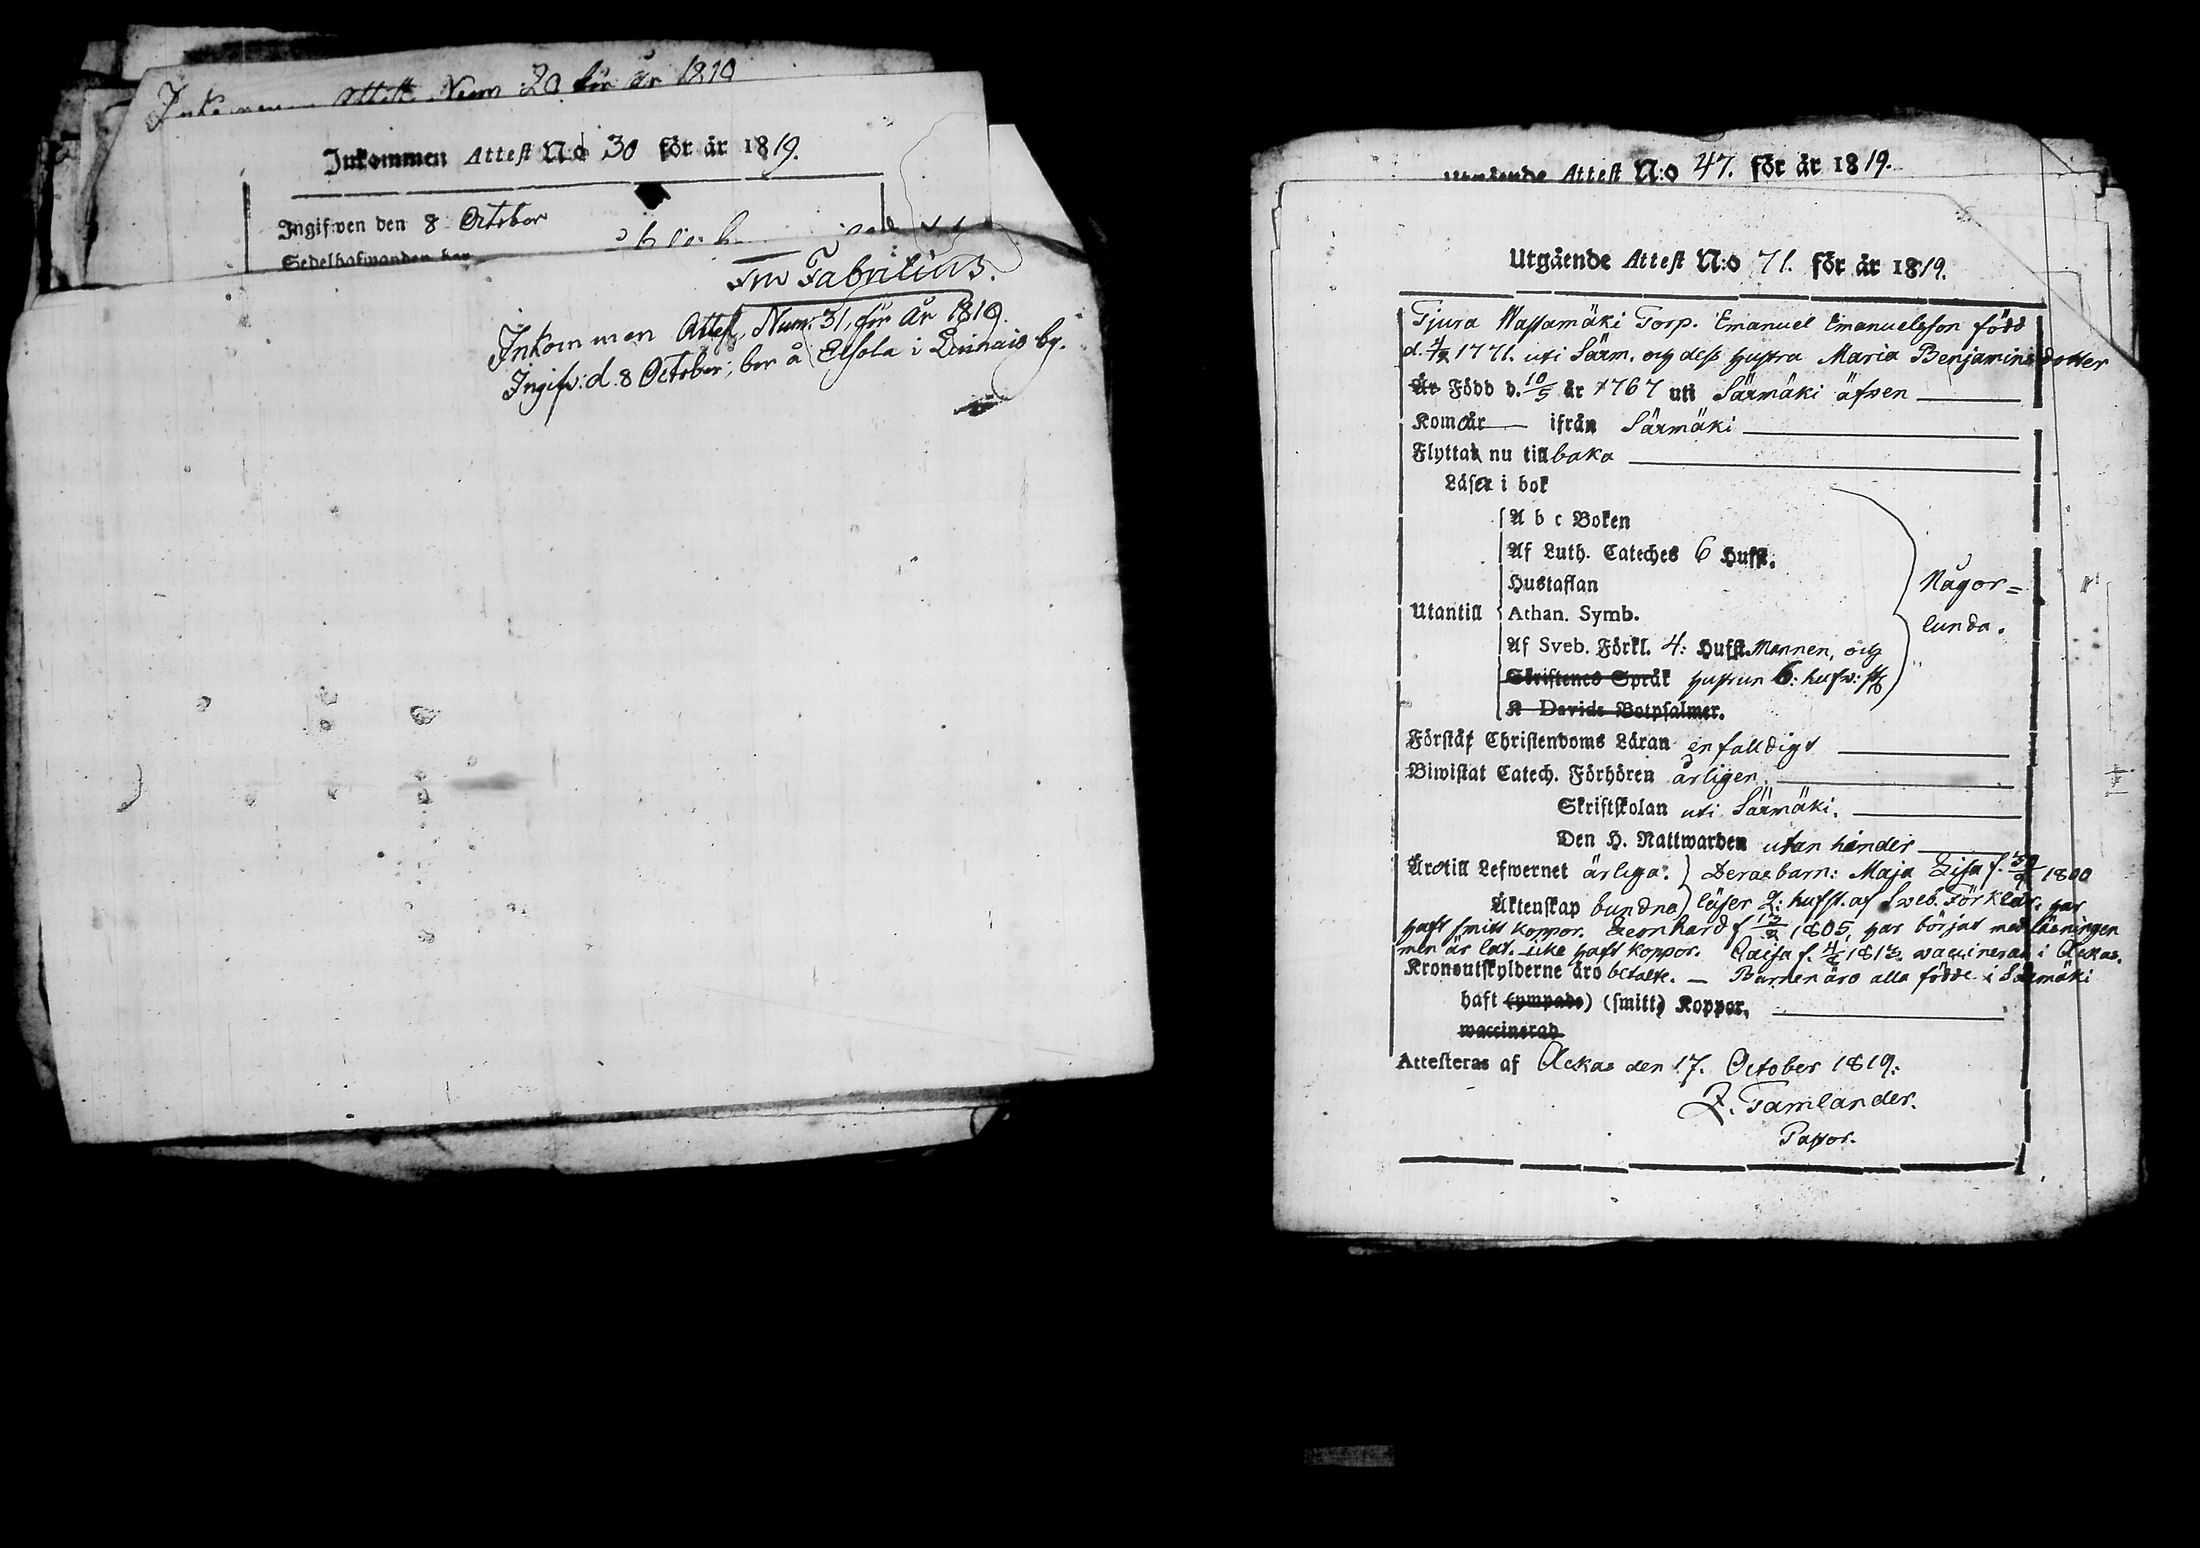 Inkommen Attest Num 20 för år 1819
Inkommen Attest N:o 30 för år 1819.
Ingifwen den 8 October
Sedelhafwanden bor
Fabritius.
Inkommen Attest, Num: 31, för år 1819.
Ingifv: d. 8 October, bor å Elsola i Linnais by.
Utgående Attest N:o 47. för år 1819.
Utgående Attest N:o 71. för år 1819.
Tjura Wastamäki Torp. Emanuel Emanuelsson född
1771. uti Särm. och dess hustra Maria Benjaminsdotter
Är Född d. 10/5 år 1767 uti Särmäki äfwen
Kom år ifrån Särmäki
Flyttar nu tillbaka
Läser i bok
A b c Boken
Af Luth. Cateches 6 Hufst.
Hustaflan
Någor=
Utantill Athan. Symb.
lunda.
Af Sveb. Förkl. 4: Hufst. Mannen, och
Skriftenes Språk hustrun 6: hufw: st
K Davids Botpsalmer.
Förstår Christendoms Läran enfalldigt
Biwistat Catech. Förhören årligen.
Skriftskolan uti Särmäki.
Den H. Nattwarden utan hinder
Äro till Lefwernet ärliga. Deras barn: Maja Lisa f. 1800
Äktenskap bundna läser 2: hufst. af Sveb. Förklar: har
haft smitt koppor. Leonhard f 1805, har börjat med läsningen
men är lat. Like haft koppor. Caisa f. waccinerad i Ackas.
Kronoutskylderne äro betalte. — Barnen äro alla födde i Särmäki
haft (ympade) (smitt) Koppor.
waccinerad
Attesteras af Ackas den 17. October 1819.
Z. Tamlander.
Pastor.